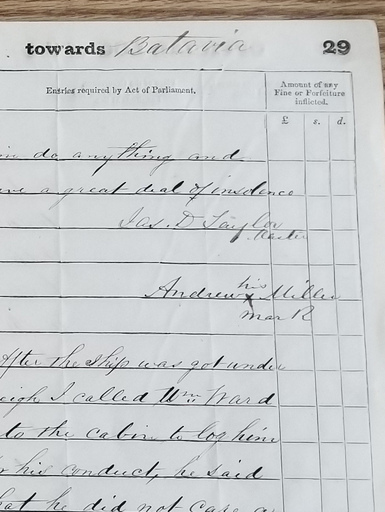 towards Batavia 29
Entries required by Act of Parliament.
Amount of any
Fine or Forfeiture
inflicted.
£ s. d.
do anything and
a great deal of insolence
Jas. D Taylor
Master
his
Andrew x Miller
mar K
After the ship was got under
I called Wm Ward
to the cabin to log him
his conduct, he said
that he did not care a